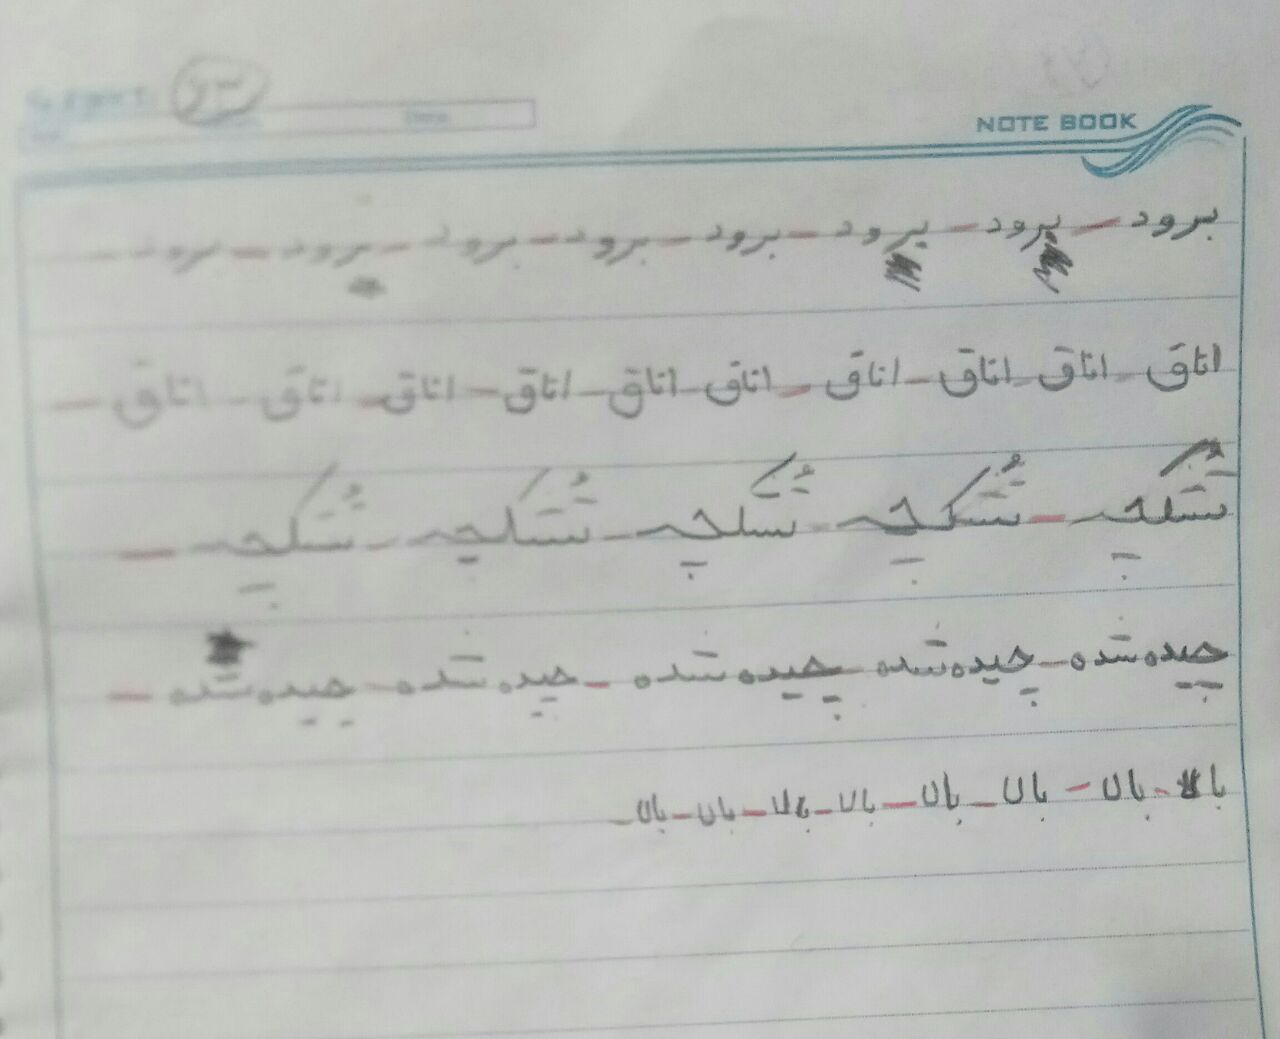 ۶۳
NOTE BOOK
برود - برود - برود - برود - برود - برود - برود - برود
اتاق - اتاق - اتاق - اتاق - اتاق - اتاق - اتاق - اتاق - اتاق
چیده شده - چیده شده - چیده شده - چیده شده - چیده شده -
بالا - بالا - بالا - بالا - بالا - بالا - بالا - بالا -